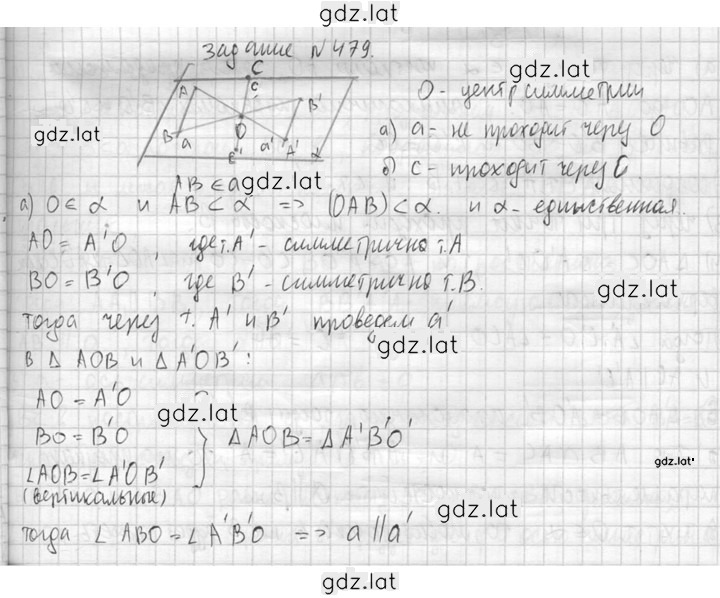 gdz.lat
задание №479.
C
A
C
B'
gdz.lat
O - центр симметрии
gdz.lat
B
a
O
C'
a'
A'
α
а) a - не проходит через O
б) c - проходит через O
A,B ∈ a
gdz.lat
а) O ∈ α и AB ⊂ α => (OAB) ⊂ α. и α - единственная.
AO = A'O, где т.A' - симметрично т.A
BO = B'O, где B' - симметрично т.B.
gdz.lat
тогда через т. A' и B' проведем a'
gdz.lat
в Δ AOB и Δ A'OB':
AO = A'O
gdz.lat
BO = B'O } ΔAOB = ΔA'B'O'
gdz.lat
∠AOB = ∠A'OB'
(вертикальные)
gdz.lat
тогда ∠ ABO = ∠A'B'O => a || a'
gdz.lat